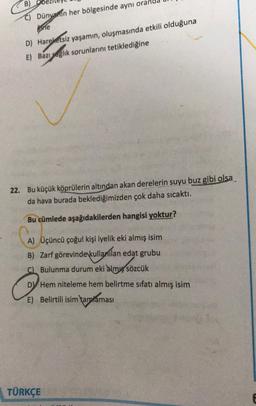 B)
C) Dünyanın her bölgesinde aynı
D) Hareketsiz yaşamın, oluşmasında etkili olduğuna
E) Bazı sağlık sorunlarını tetiklediğine
22. Bu küçük köprülerin altından akan derelerin suyu buz gibi olsa
da hava burada beklediğimizden çok daha sıcaktı.
Bu cümlede aşağıdakilerden hangisi yoktur?
A) Üçüncü çoğul kişi iyelik eki almış isim
B) Zarf görevinde kullanılan edat grubu
C) Bulunma durum eki almış sözcük
D) Hem niteleme hem belirtme sıfatı almış isim
E) Belirtili isim tamlaması
TÜRKÇE